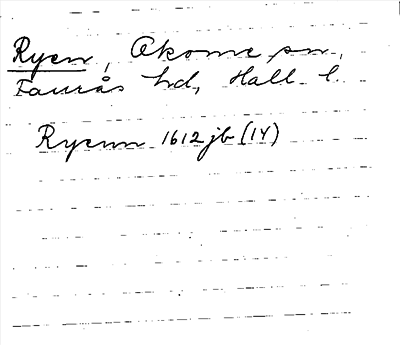 Ryen, Okome sn.,
Faurås hd, Hall. l.
Ryenn 1612 jb (14)